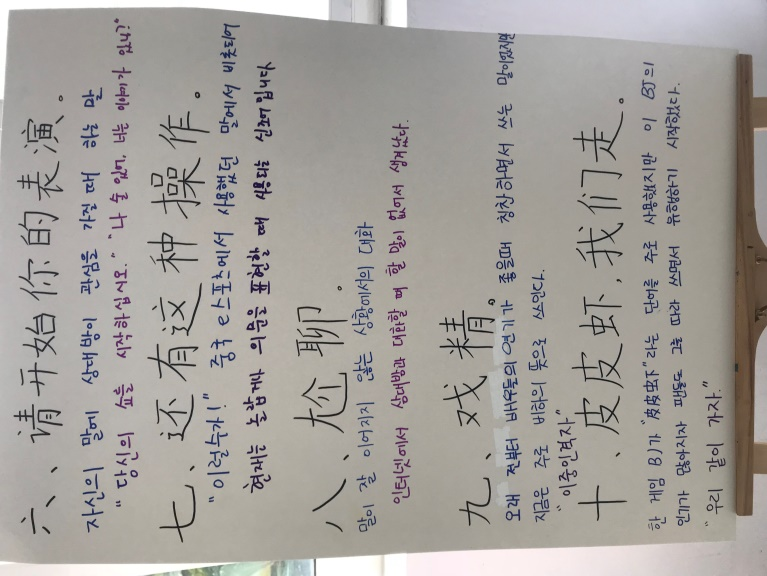 六、请开始你的表演。
자신의 말에 상대방이 관심을 가질 때 하는 말
"당신의 쇼를 시작하십시오." "나 술 있어, 너는 이야기가 있어?"
七、还有这种操作。
"이럴수가!" 중국 e스포츠에서 사용했던 말에서 비롯되어
현재는 놀랍게 의문을 표현할 때 사용된 신조어입니다.
八、尬聊。
말이 잘 이어지지 않는 상황에서의 대화
인터넷에서 상대방과 대화할 때 할 말이 없어서 생겨났다.
九、戏精。
오래 전부터 배우들의 연기가 좋을때 칭찬하면서 쓰는 말이었지만
지금은 주로 비하의 뜻으로 쓰인다.
"이중인격자"
十、皮皮虾,我们走。
한 게임 BJ가 "皮皮虾"라는 단어를 주로 사용했지만 이 BJ의
인기가 많아지자 팬들도 그를 따라 쓰면서 유행하기 시작했다.
"우리 같이 가자."